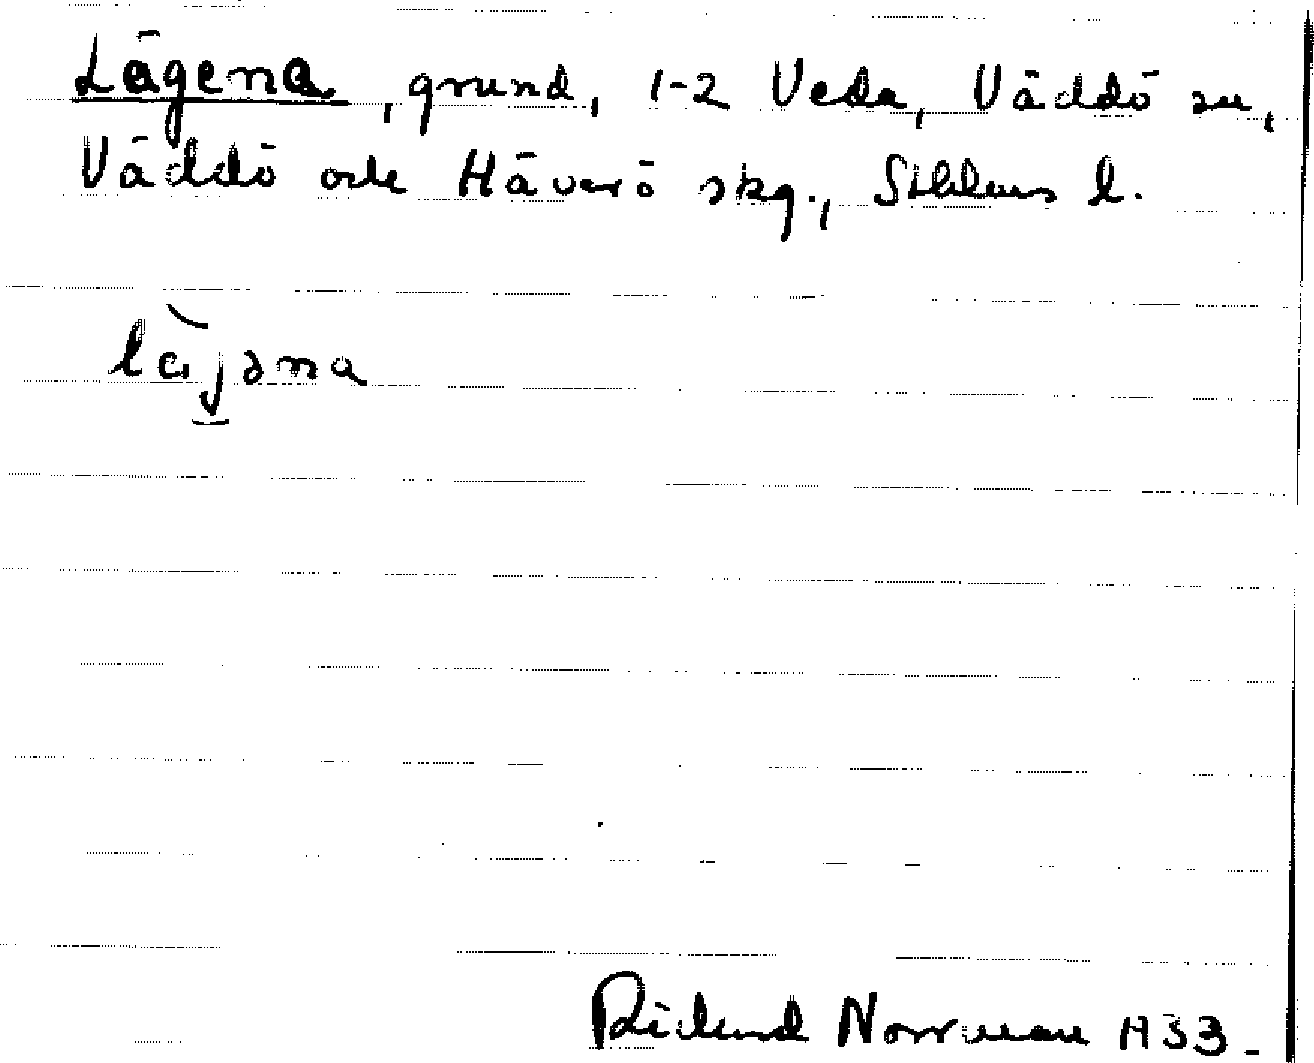 Lägena, grund, 1-2 Veda, Väddö sn,
Väddö och Häverö skg., Sthlms l.
läjəna
Richard Norrman 1933